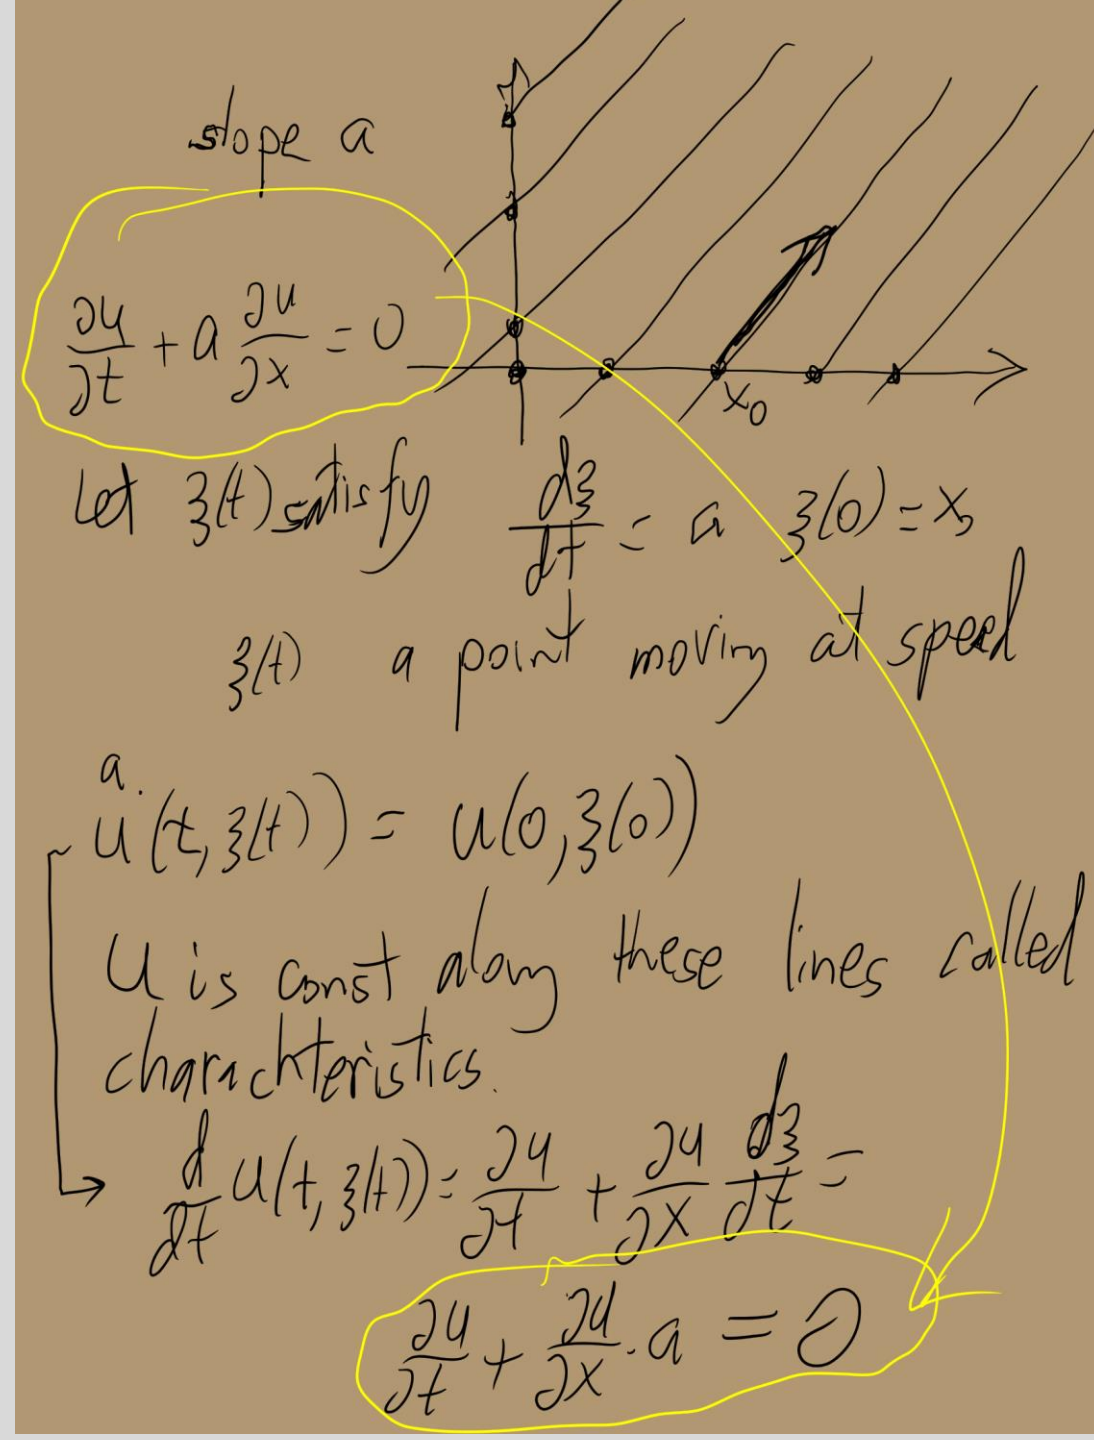 slope a
∂u/∂t + a ∂u/∂x = 0
x₀
Let ξ(t) satisfy dξ/dt = a ξ(0) = x₀
ξ(t) a point moving at speed
a.
u(t, ξ(t)) = u(0, ξ(0))
u is const along these lines called
charachteristics.
d/dt u(t, ξ(t)) = ∂u/∂t + ∂u/∂x dξ/dt =
∂u/∂t + ∂u/∂x · a = 0